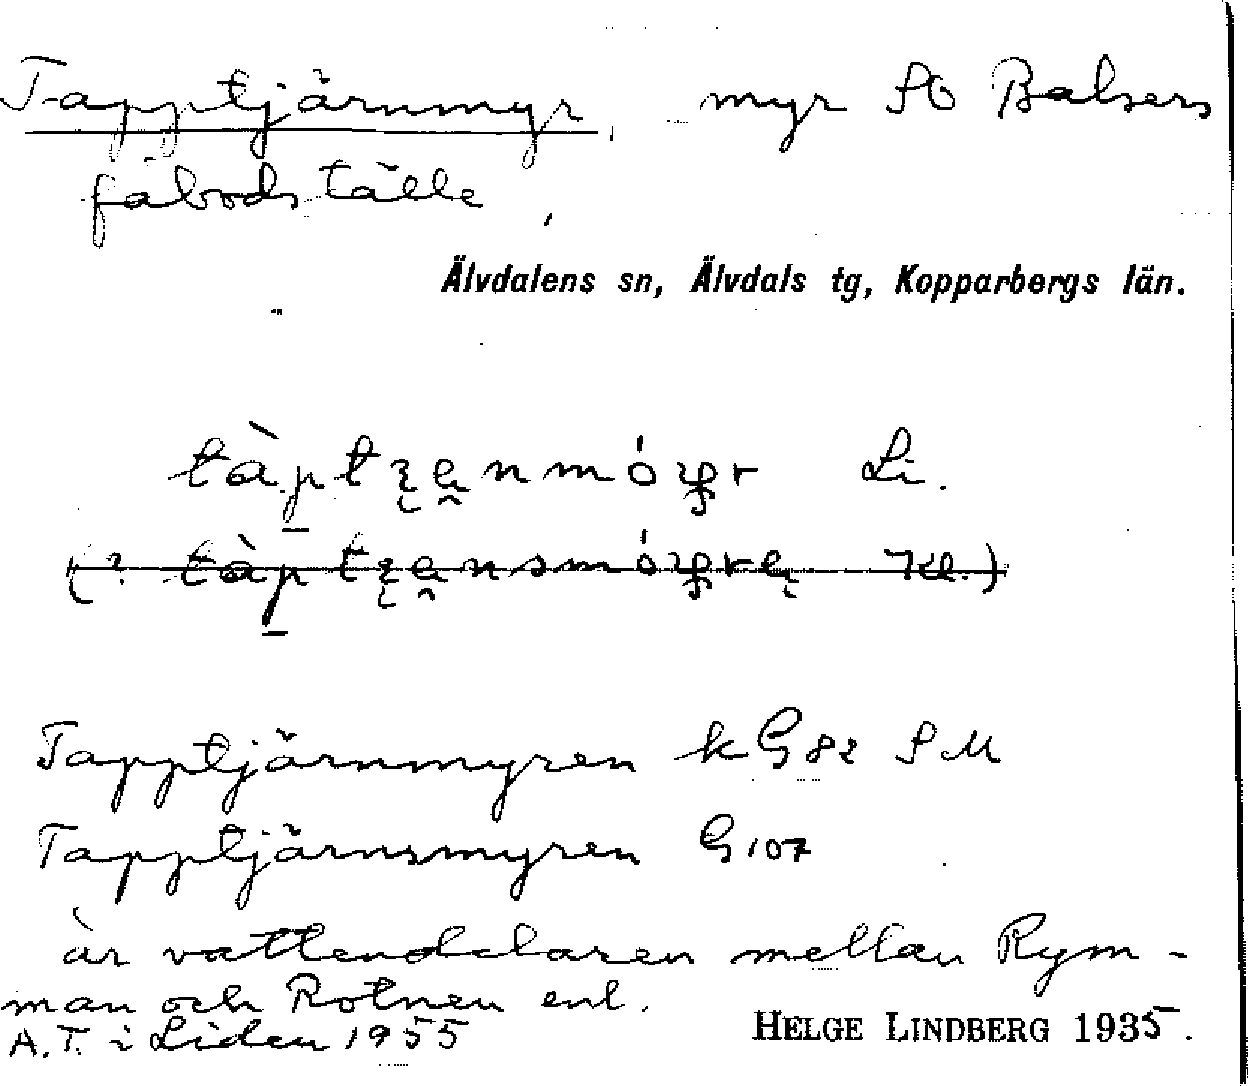 Tapptjärnmyr, myr SO Balsers
fäbodställe
Älvdalens sn, Älvdals tg, Kopparbergs län.
Li.
Tapptjärnmyren k G 82 S M
Tapptjärnsmyren G 107
är vattendelaren mellan Rym-
man och Rotnen enl.
A.T. i Liden 1955
HELGE LINDBERG 1935.